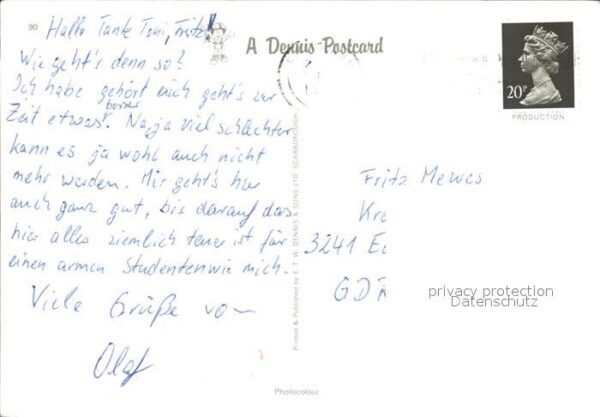 90
Hallo Tante Toni, Fritz!
Wie geht's denn so?
Ich habe gehört euch geht's zur
Zeit etwas besser. Na ja viel schlechter
kann es ja wohl auch nicht
mehr werden. Mir geht's hier
auch ganz gut, bis darauf das
hier alles ziemlich teuer ist für
einen armen Studenten wie mich.
Viele Grüße von
Olaf
A Dennis Postcard
Printed & Published by E. T. W. DENNIS & SONS LTD. SCARBOROUGH
Photocolour
20P
PRODUCTION
Fritz Mewes
Kre
3241
GDR
privacy protection
Datenschutz